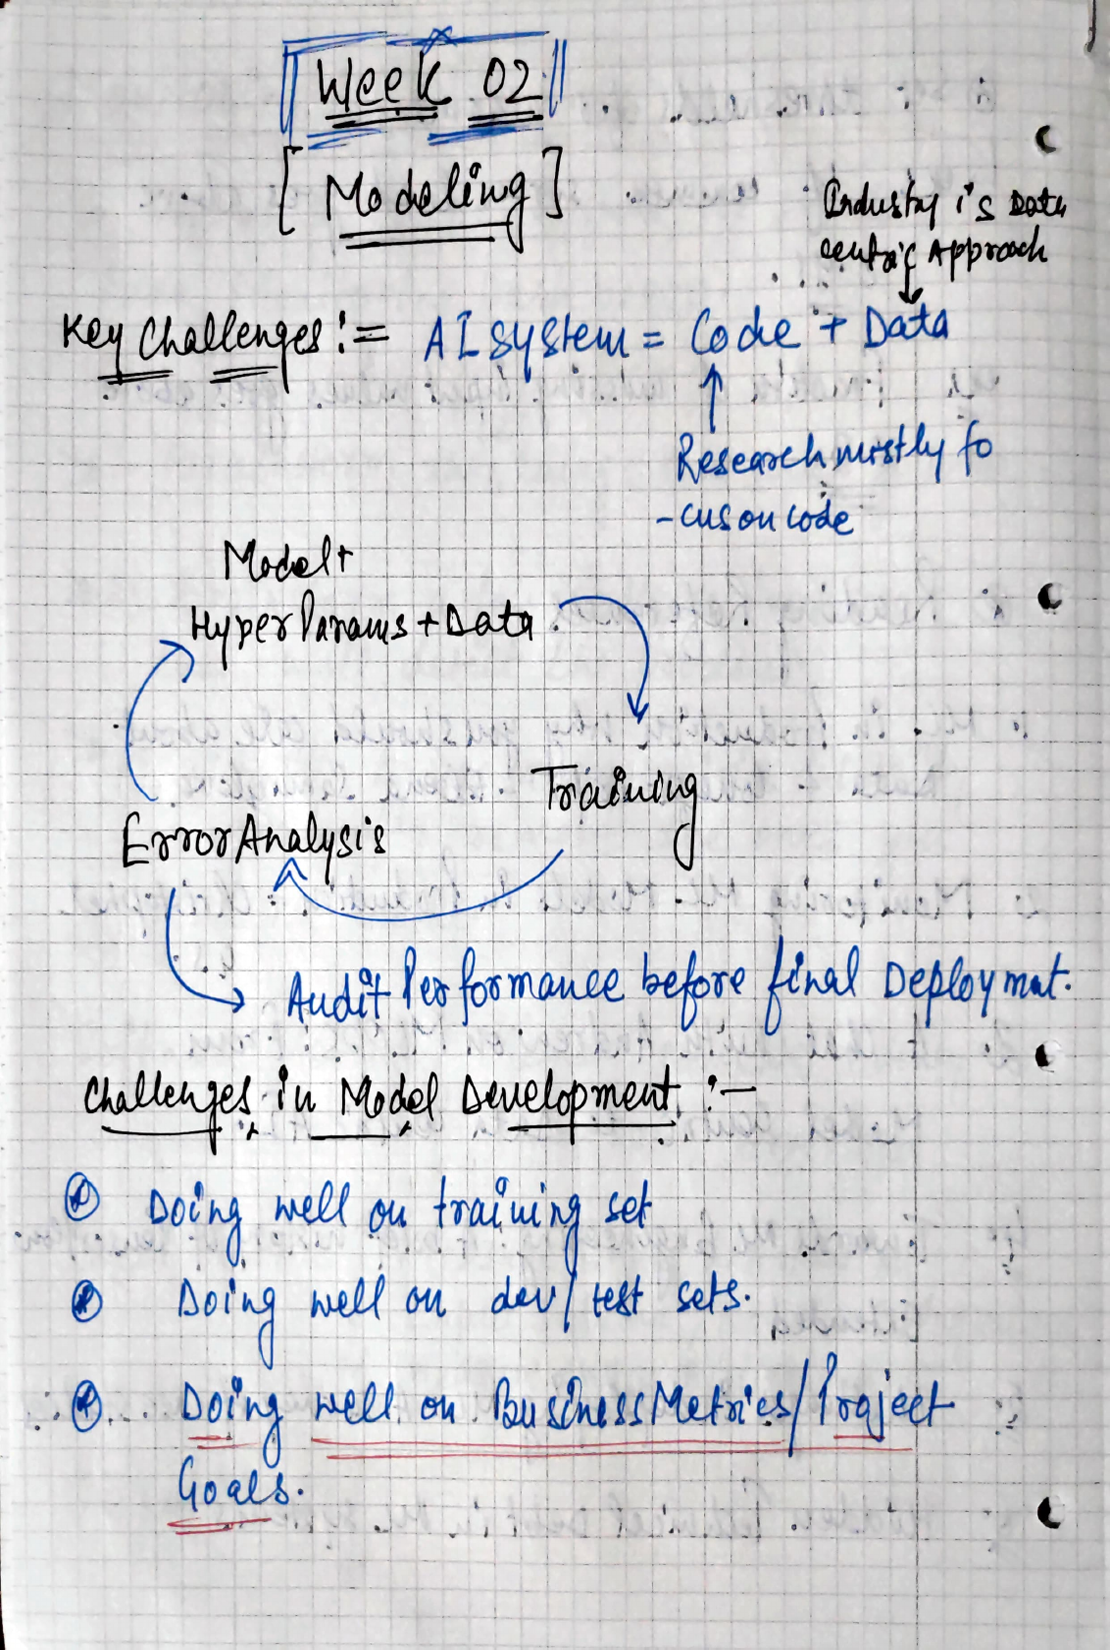 Week 02
[Modeling]
Industry is Data
centric Approach
Key Challenges := AI system = Code + Data
Research mostly fo
-cus on code
Model +
HyperParams + Data
Training
Error Analysis
Audit Performance before final Deploymnt.
Challenges in Model Development :-
Doing well on training set
Doing well on dev/test sets.
Doing well on Business Metrics/Project
Goals.